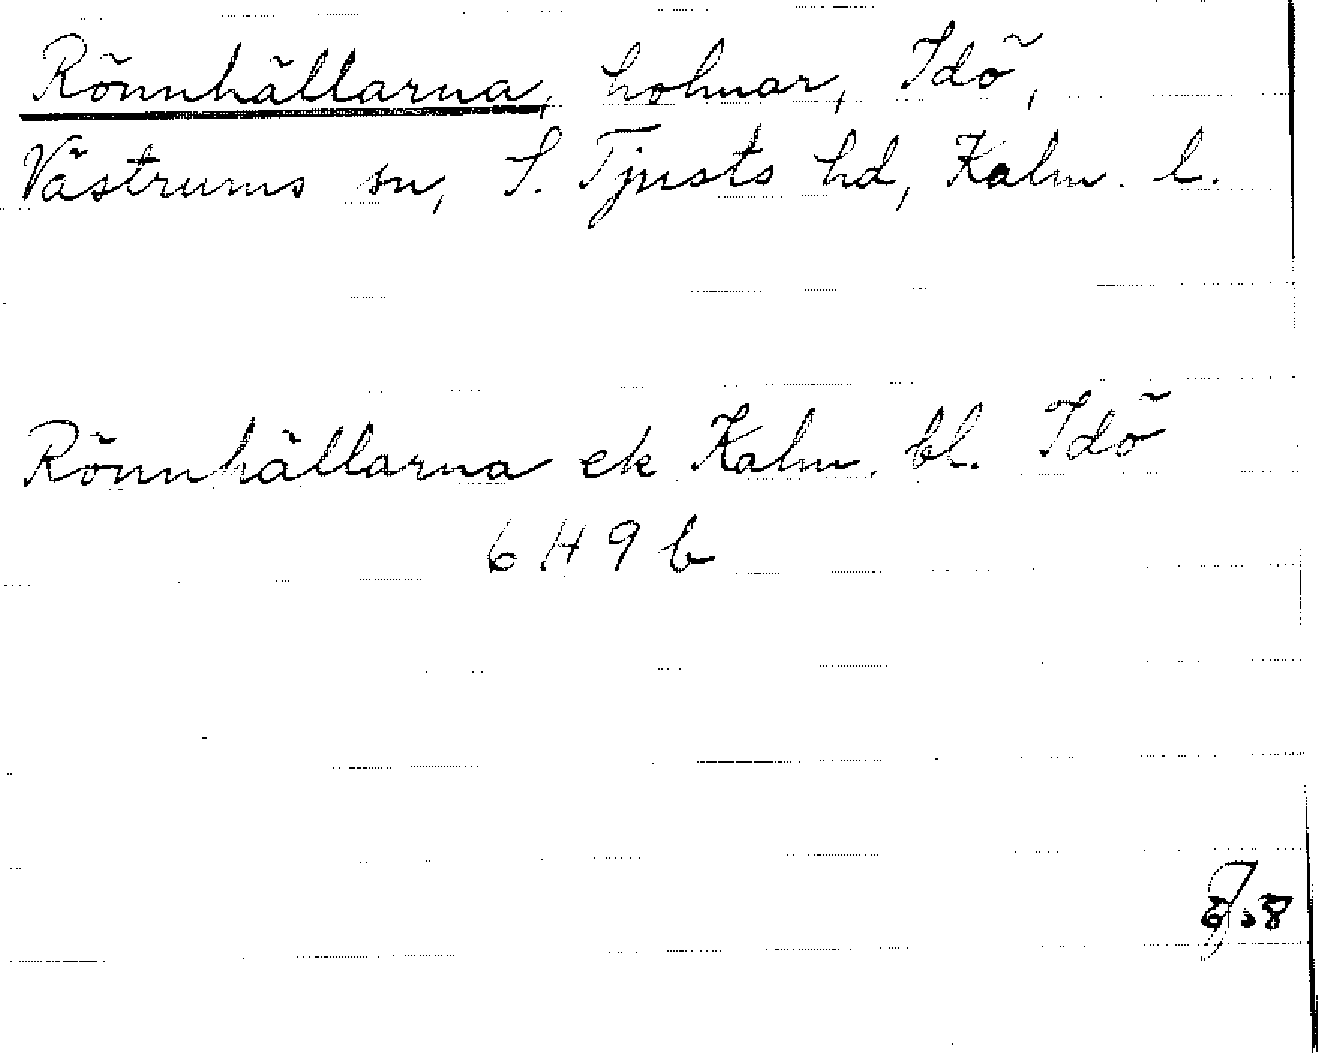 Rönnhällarna, holmar, Idö,
Västrums sn, S. Tjusts hd, Kalm. l.
Rönnhällarna ek Kalm. bl. Idö
6 H 9 b